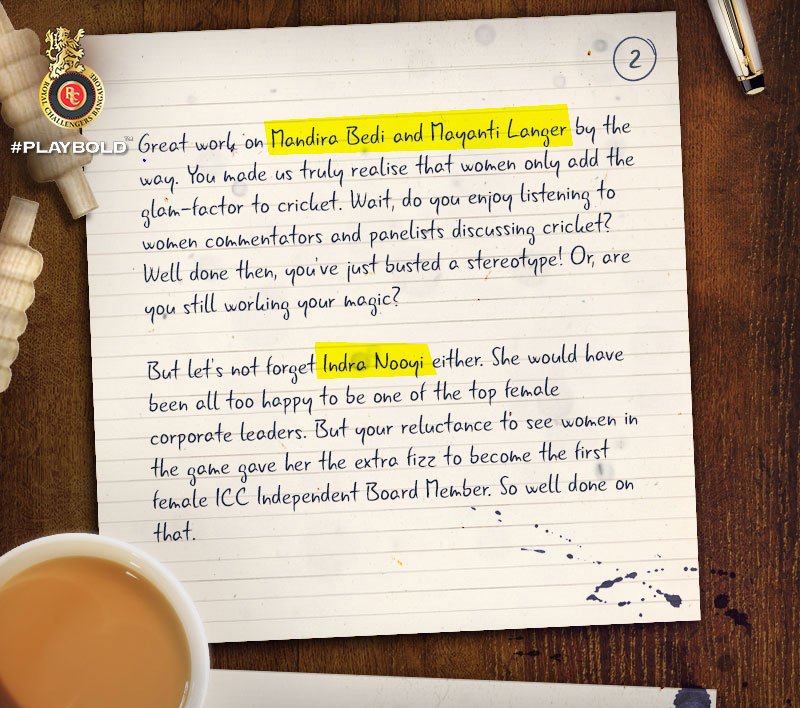 2
ROYAL CHALLENGERS BANGALORE
RC
#PLAYBOLD
TM
Great work on Mandira Bedi and Mayanti Langer by the
way. You made us truly realise that women only add the
glam-factor to cricket. Wait, do you enjoy listening to
women commentators and panelists discussing cricket?
Well done then, you've just busted a stereotype! Or, are
you still working your magic?
But let's not forget Indra Nooyi either. She would have
been all too happy to be one of the top female
corporate leaders. But your reluctance to see women in
the game gave her the extra fizz to become the first
female ICC Independent Board Member. So well done on
that.